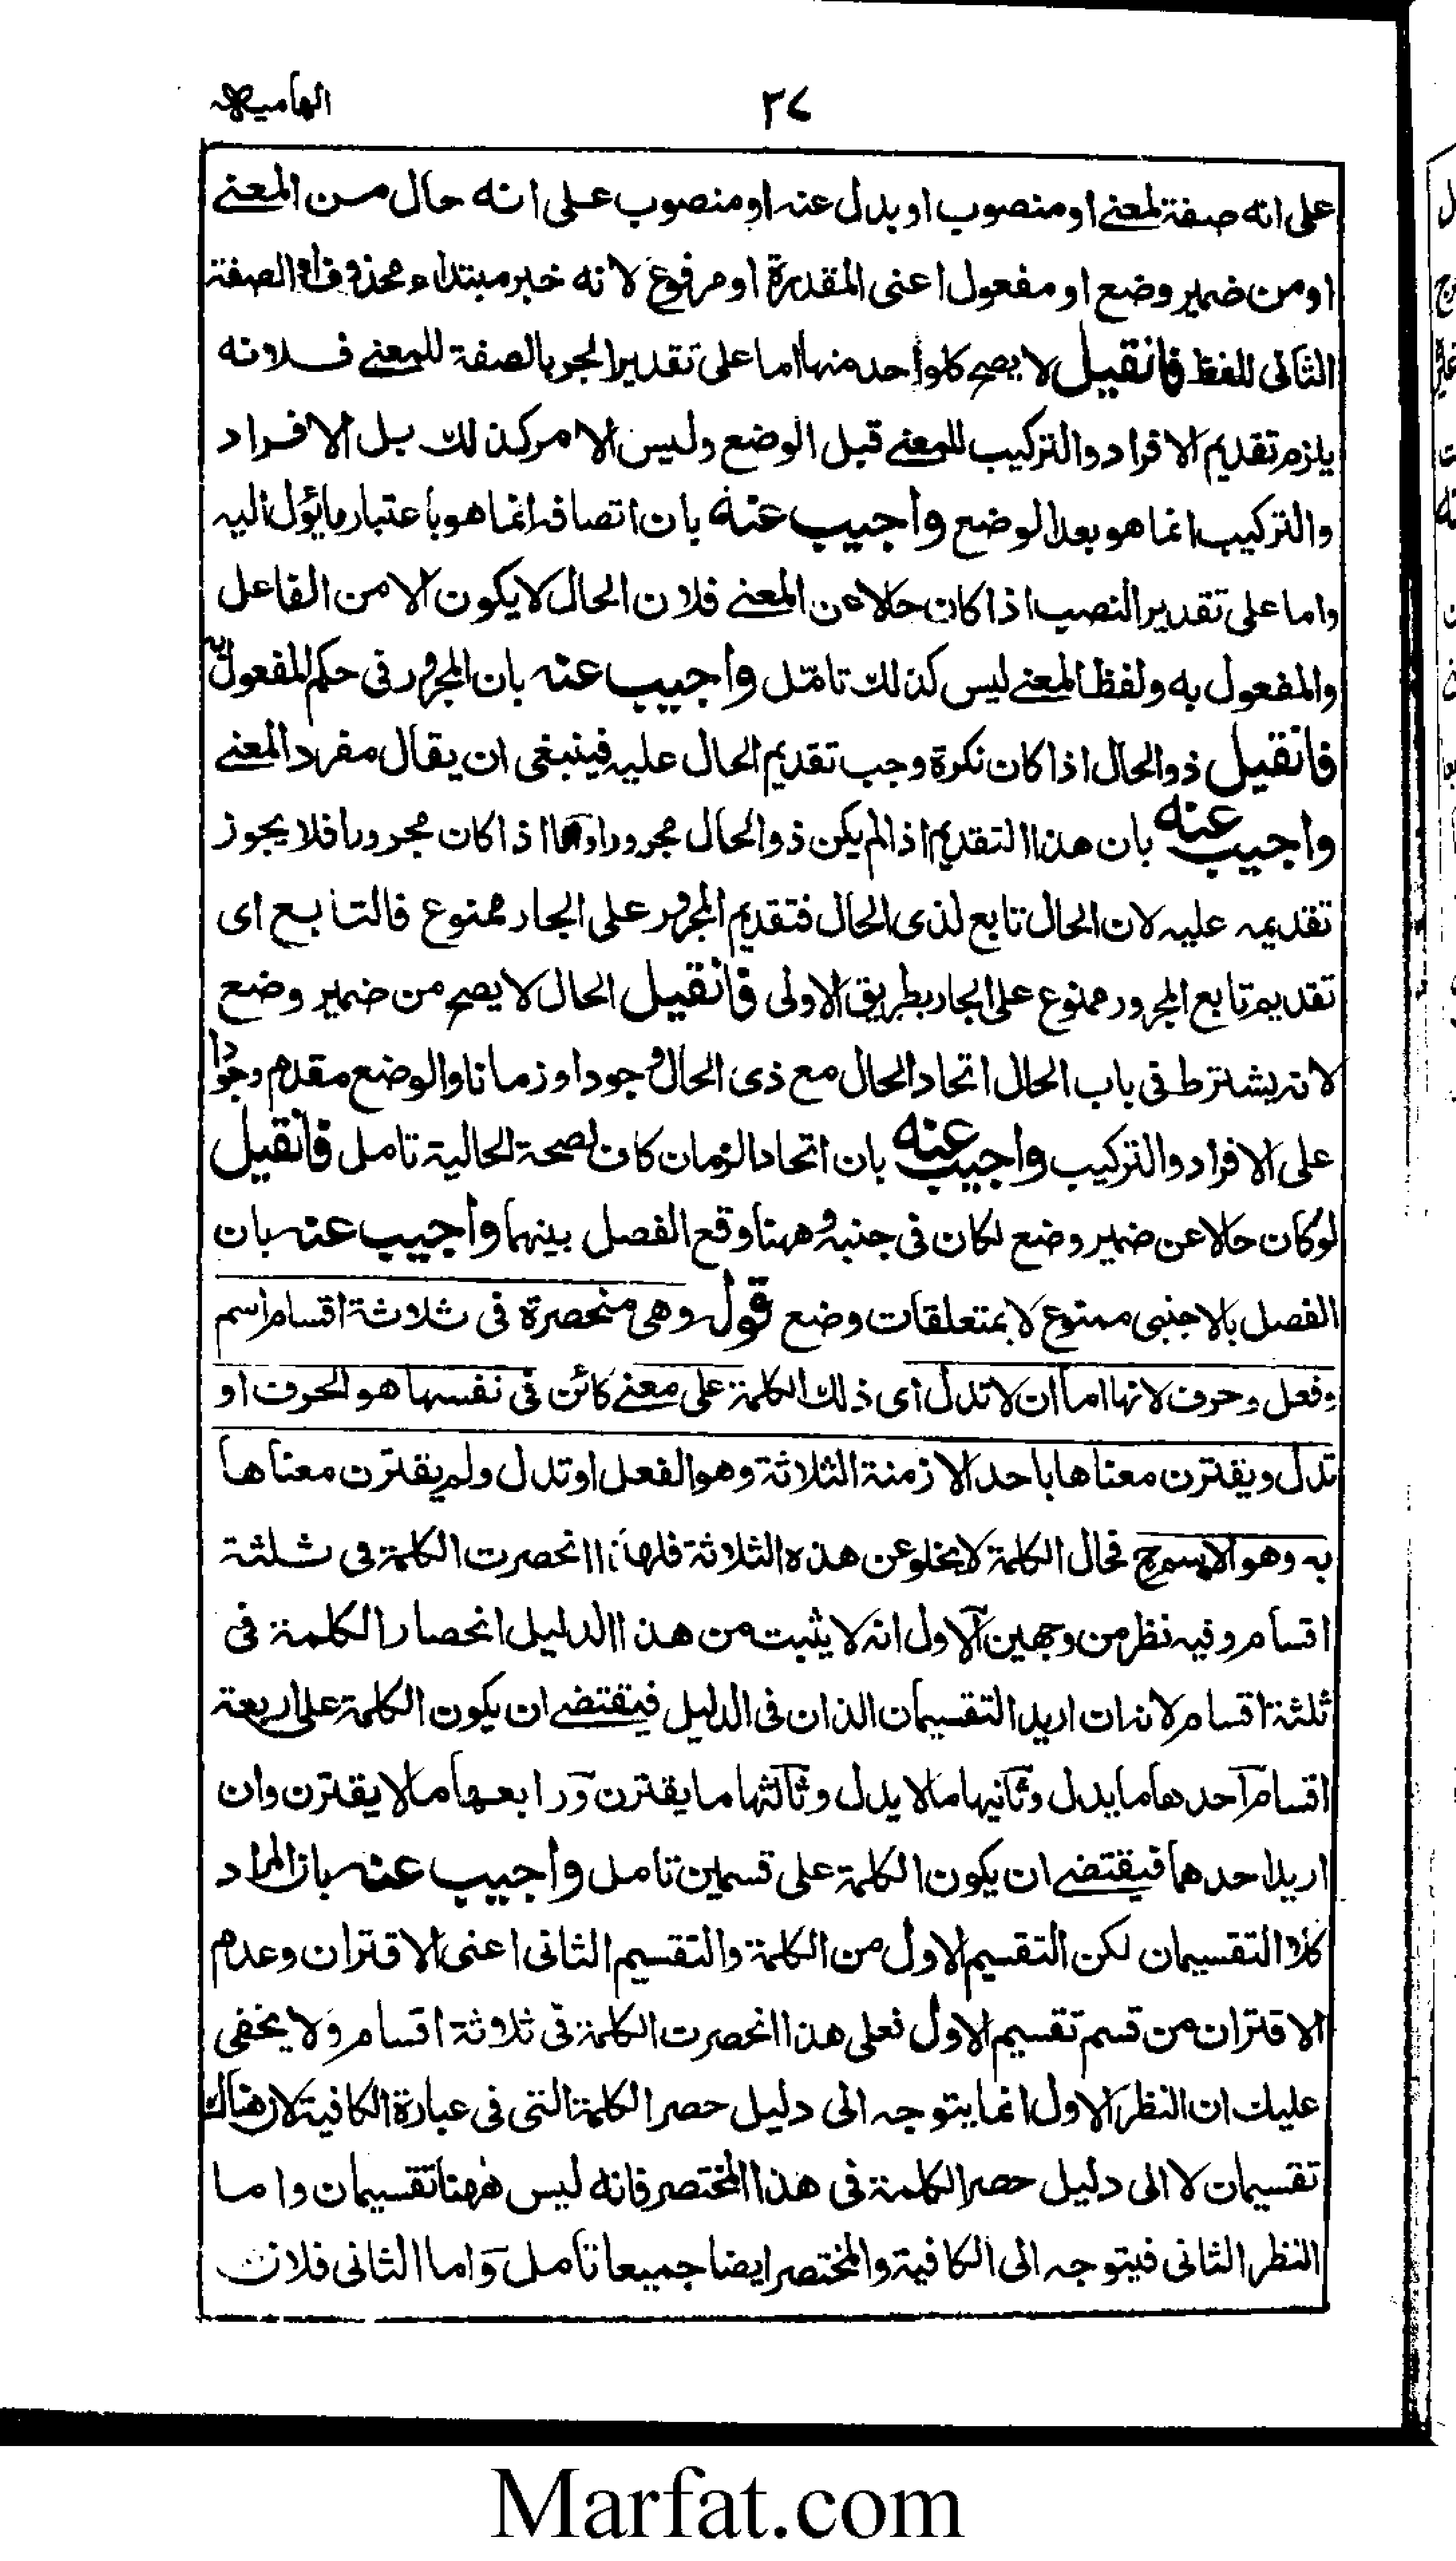 الهاميه
٣٧
على انه صفة لمعنے او منصوب او بدل عنه او منصوب على انه حال من المعنے
او من ضمير وضع او مفعول اعنى المقدرة او مرفوع لانه خبر مبتداء محذوف او الصفة
الثانى للفظ فانقيل لا يصح كلواحد منها اما على تقدير الجر بالصفة للمعنے فلانه
يلزم تقديم الافراد والتركيب للمعنے قبل الوضع وليس الامر كذلك بل الافراد
والتركيب انما هو بعد الوضع واجيب عنه بان اتصافه انما هو باعتبار ما يؤل اليه
واما على تقدير النصب اذا كان حالا عن المعنے فلان الحال لا يكون الا من الفاعل
والمفعول به ولفظ المعنے ليس كذلك تامل واجيب عنه بان المجرور فى حكم المفعول به
فانقيل ذوالحال اذا كان نكرة وجب تقديم الحال عليه فينبغى ان يقال مفرد المعنے
واجيب عنه بان هذا التقديم اذا لم يكن ذوالحال مجرورا واما اذا كان مجرورا فلا يجوز
تقديمه عليه لان الحال تابع لذى الحال فتقديم المجرور على الجار ممنوع فالتابع اى
تقديم تابع المجرور ممنوع على الجار بطريق الاولى فانقيل الحال لا يصح من ضمير وضع
لانه يشترط فى باب الحال اتحاد الحال مع ذى الحال وجودا وزمانا والوضع مقدم وجودا
على الافراد والتركيب واجيب عنه بان اتحاد الزمان كاف لصحة الحالية تامل فانقيل
لو كان حالا عن ضمير وضع لكان فى جنبه وههنا وقع الفصل بينهما واجيب عنه بان
الفصل بالاجنبى ممنوع لا بمتعلقات وضع قوله وهى منحصرة فى ثلاثة اقسام اسم
وفعل وحرف لانها اما ان لا تدل اى ذلك الكلمة على معنے كائن فى نفسها هو الحرف او
تدل ويقترن معناها باحد الازمنة الثلاثة وهو الفعل او تدل ولم يقترن معناها
به وهو الاسم ح فحال الكلمة لا يخلو عن هذه الثلاثة فلهذا انحصرت الكلمة فى ثلثة
اقسام وفيه نظر من وجهين الاول انه لا يثبت من هذا الدليل انحصار الكلمة فى
ثلثة اقسام لانه ان اريد التقسيمان الذان فى الدليل فيقتضے ان يكون الكلمة على اربعة
اقسام احدها ما يدل وثانيها ما لا يدل وثالثها ما يقترن ورابعها ما لا يقترن وان
اريد احدهما فيقتضے ان يكون الكلمة على قسمين تامل واجيب عنه بان المراد
كلا التقسيمان لكن التقسيم الاول من الكلمة والتقسيم الثانى اعنى الاقتران وعدم
الاقتران من قسم تقسيم الاول فعلى هذا انحصرت الكلمة فى ثلاثة اقسام ولا يخفى
عليك ان النظر الاول انما يتوجه الى دليل حصر الكلمة التى فى عبارة الكافية لان هناك
تقسيمان لا الى دليل حصر الكلمة فى هذا المختصر فانه ليس ههنا تقسيمان واما
النظر الثانى فيتوجه الى الكافية والمختصر ايضا جميعا تامل واما الثانى فلان
Marfat.com